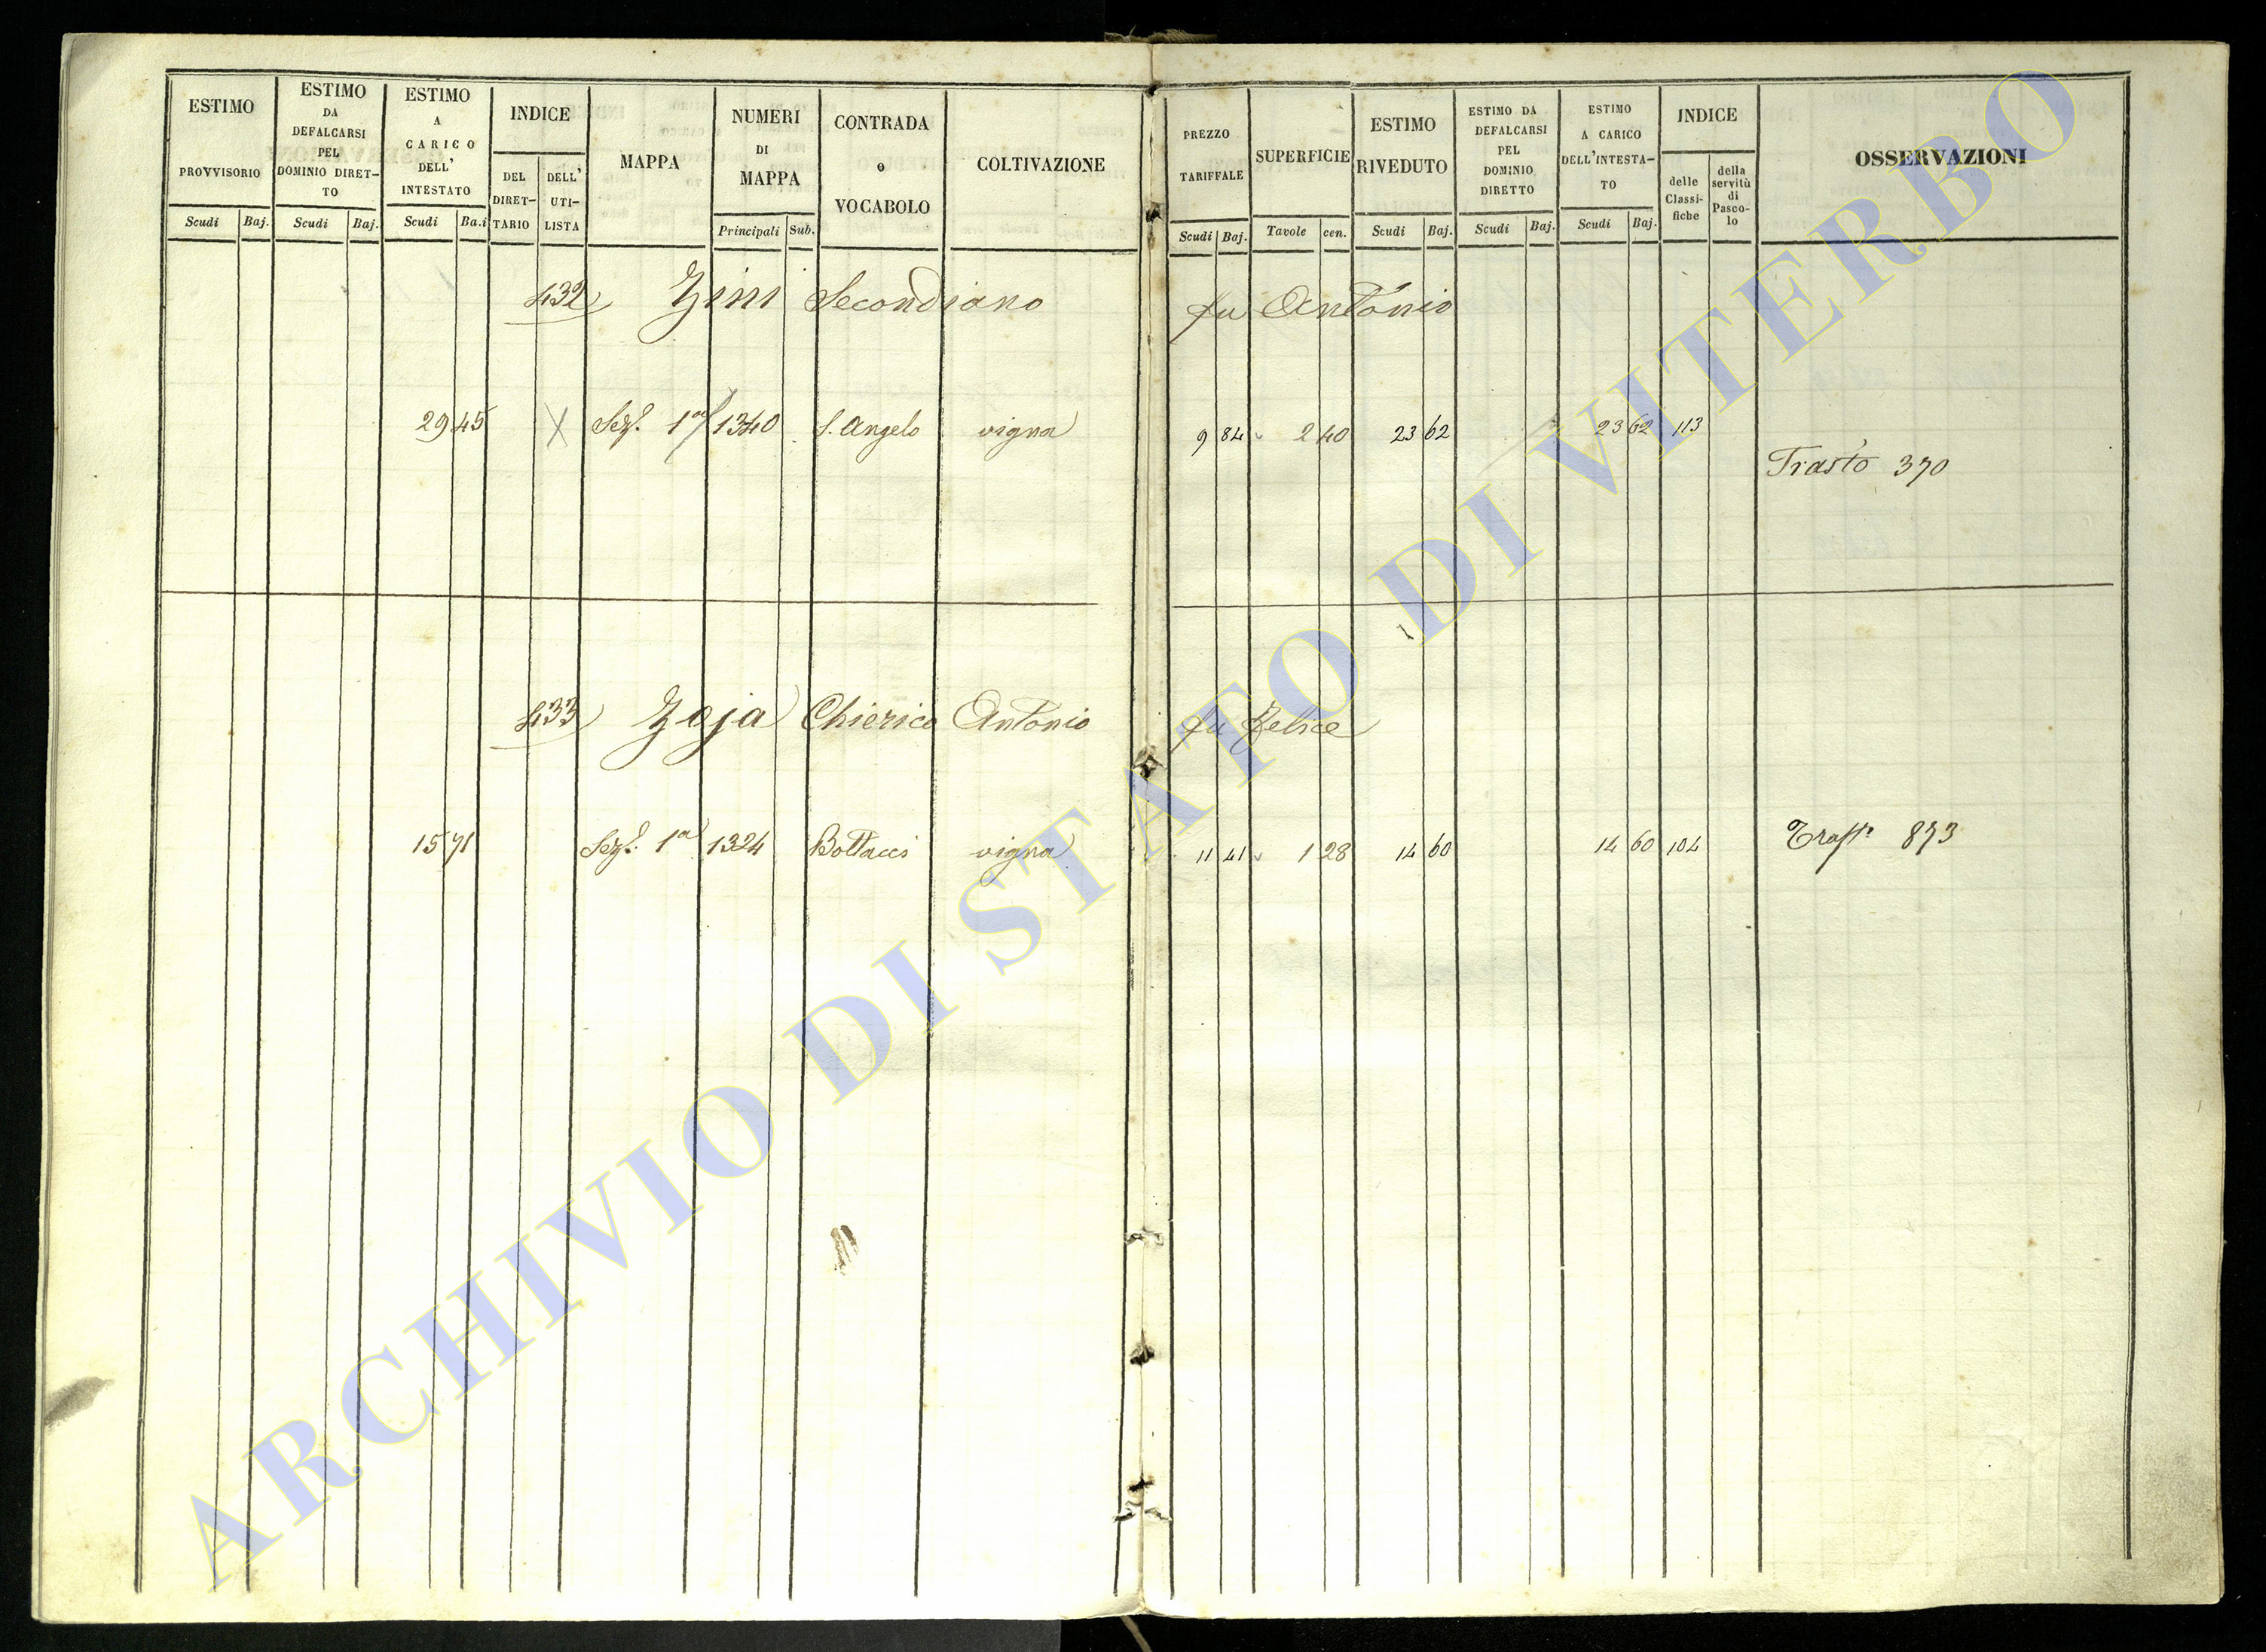 ESTIMO PROVVISORIO Scudi Baj.
ESTIMO DA DEFALCARSI PEL DOMINIO DIRET-TO Scudi Baj.
ESTIMO A CARICO DELL' INTESTATO Scudi Ba.i
INDICE DEL DIRET-TARIO DELL' UTI-LISTA
MAPPA
NUMERI DI MAPPA Principali Sub.
CONTRADA o VOCABOLO
COLTIVAZIONE
PREZZO TARIFFALE Scudi Baj.
SUPERFICIE Tavole cen.
ESTIMO RIVEDUTO Scudi Baj.
ESTIMO DA DEFALCARSI PEL DOMINIO DIRETTO Scudi Baj.
ESTIMO A CARICO DELL'INTESTA-TO Scudi Baj.
INDICE delle Classi-fiche della servitù di Pasco-lo
OSSERVAZIONI
432 Zini Secondiano fu Antonio
29 45 X Sez. 1a 1340 S. Angelo vigna 9 84 2 40 23 62 23 62 113
Trasto 370
433 Zoja Chierico Antonio fu Felice
15 71 Sez. 1a 1324 Bottacci vigna 11 41 1 28 14 60 14 60 104 873
ARCHIVIO DI STATO DI VITERBO